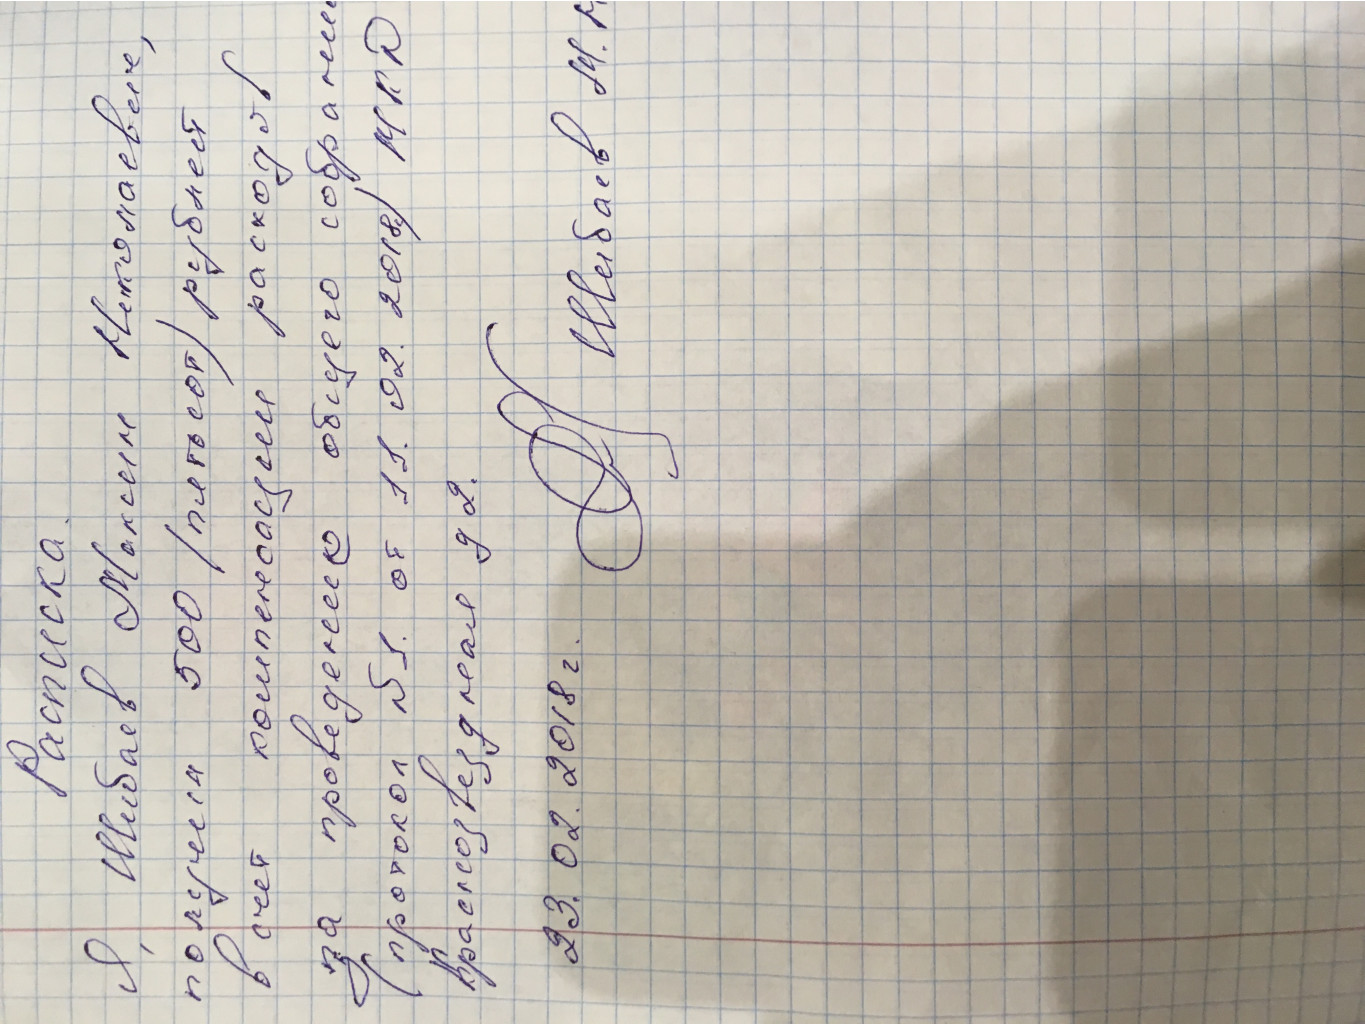 Расписка.
Я, Шибаев Максим Николаевич,
получил 500 (пятьсот) рублей
в счет компенсации расходов
за проведению общего собрания
(протокол №1. от 11. 02. 2018) МКД
Краснозвездная д 2.
23. 02. 2018 г. Шибаев М. Н